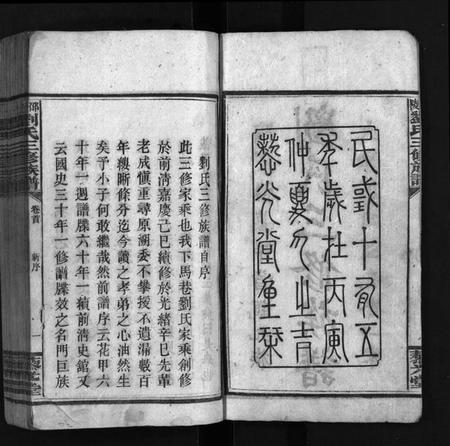 陵劉氏三修族譜
民國十有五
年歲在丙寅
仲夏月之
藜光堂重栞
劉氏三修族譜自序
此三修家乘也我下馬巷劉氏家乘創修
於前清嘉慶己巳續修於光緒辛巳先輩
老成慎重尋原溯委不攀援不遺漏數百
年縷晰條分迄今讀之孝弟之心油然生
矣予小子何敢繼哉然前譜序云花甲六
十年一週譜牒六十年一續前清史館又
云國史三十年一修譜牒效之名門巨族
邵劉氏三修族譜 卷首 新序 一